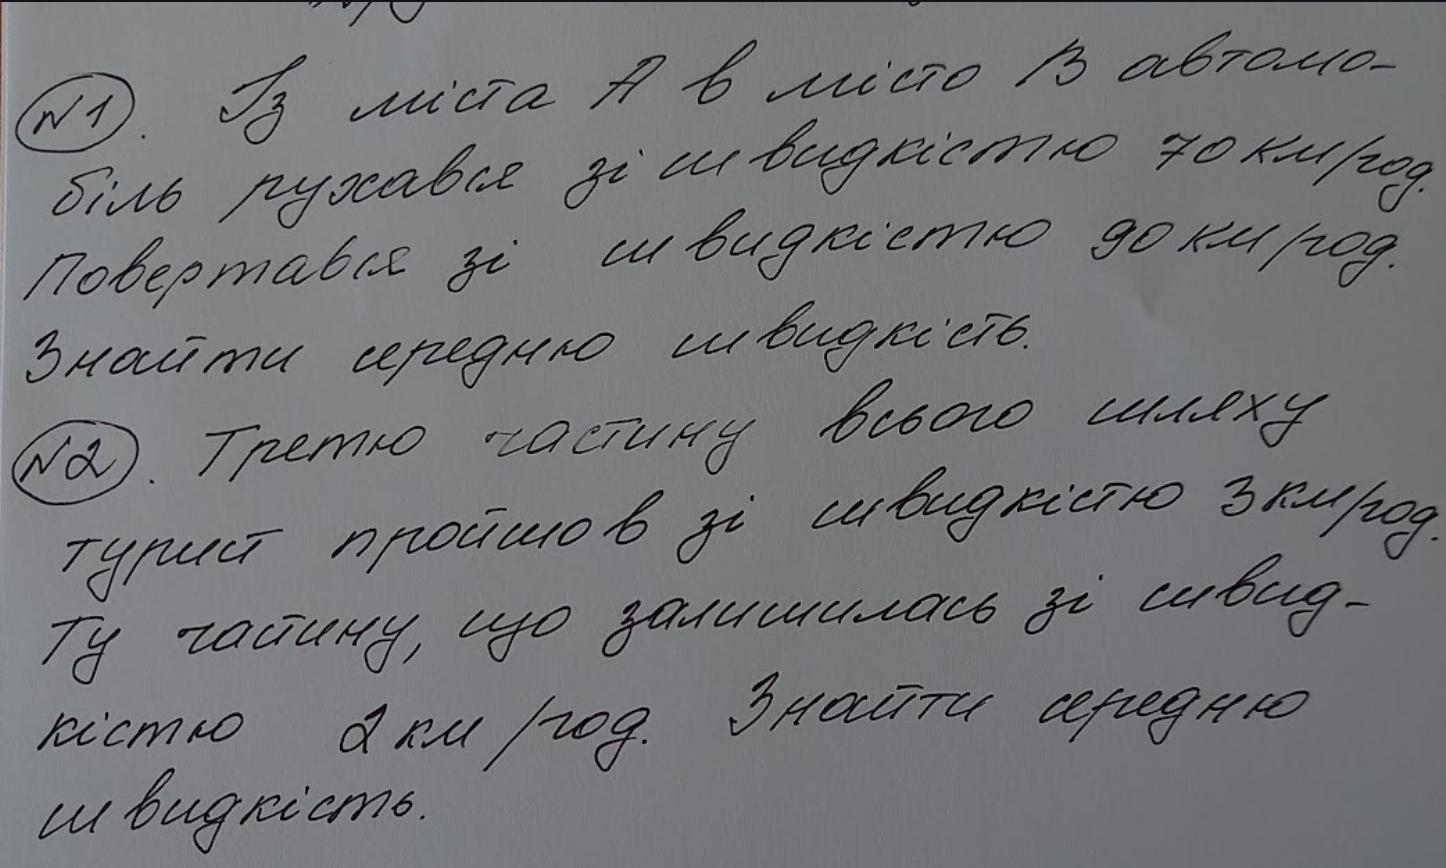 №1. Із міста А в місто В автомо-
біль рухався зі швидкістю 70 км/год.
Повертався зі швидкістю 90 км/год.
Знайти середню швидкість.
№2. Третю частину всього шляху
турист пройшов зі швидкістю 3 км/год.
Ту частину, що залишилась зі швид-
кістю 2 км/год. Знайти середню
швидкість.